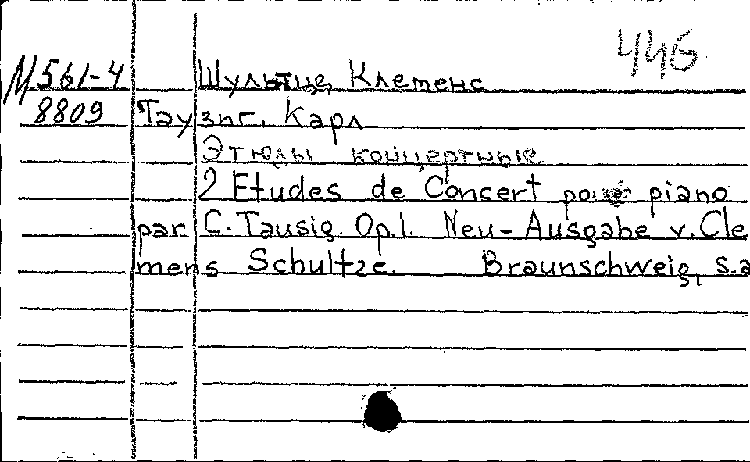 446
М561-4 Шультце, Клеменс
8809 Таузиг, Карл
Этюды концертные
2 Etudes de Concert pour piano
par C. Tausig Op.1. Neu-Ausgabe v. Cle
mens Schultze. Braunschweig, s.a